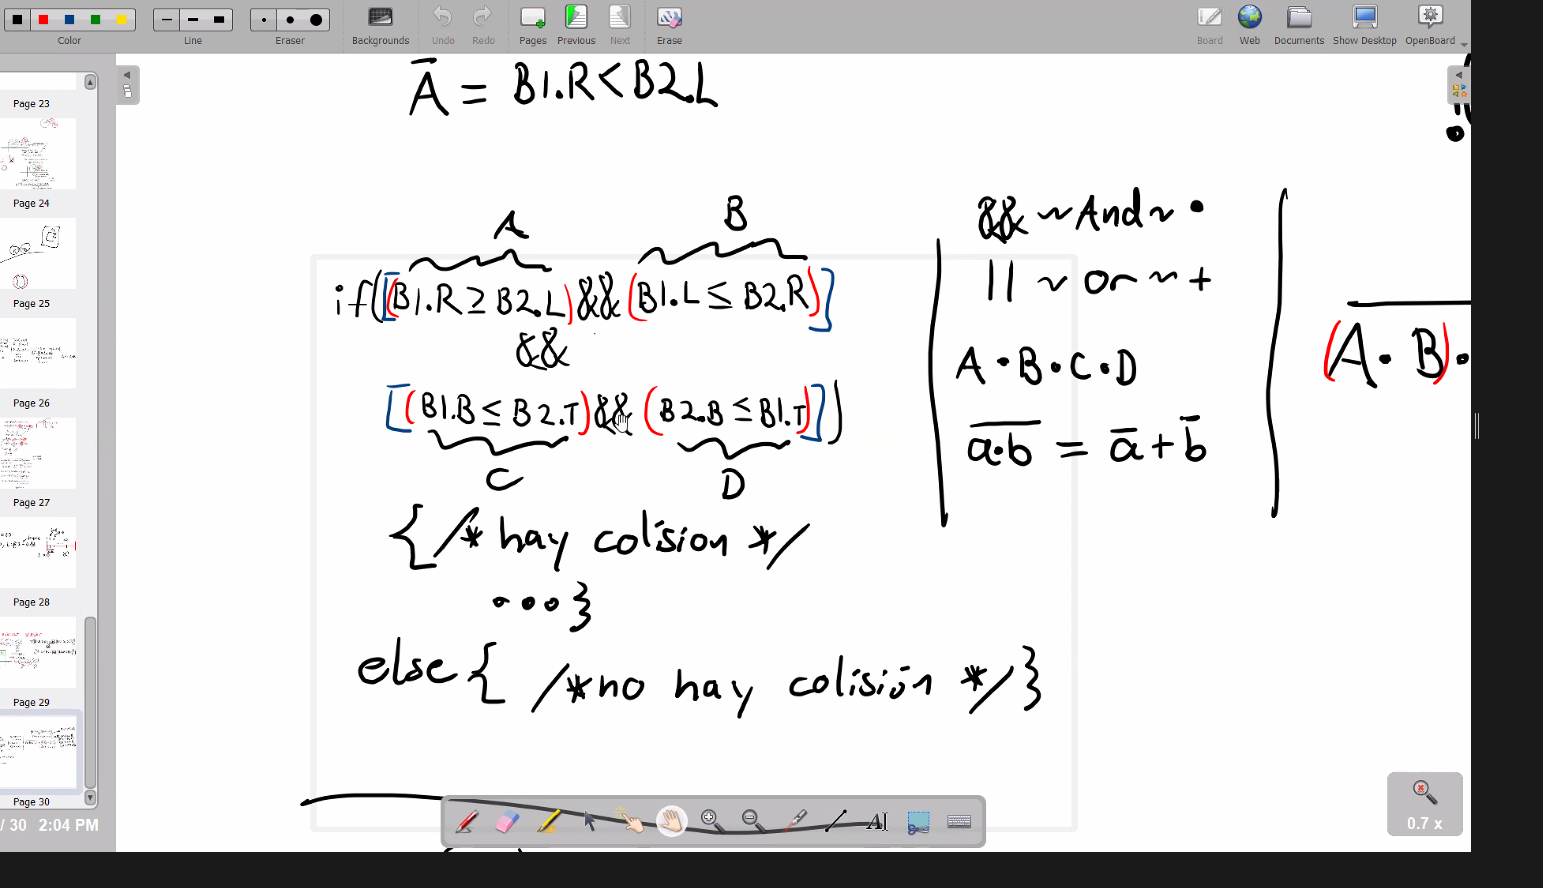 Color
Line
Eraser
Backgrounds
Undo
Redo
Pages
Previous
Next
Erase
Board
Web
Documents
Show Desktop
OpenBoard
Page 23
Page 24
Page 25
Page 26
Page 27
Page 28
Page 29
Page 30
/ 30 2:04 PM
Ā = B1.R < B2.L
A B
if([(B1.R ≥ B2.L) && (B1.L ≤ B2.R)]
&&
[(B1.B ≤ B2.T) && (B2.B ≤ B1.T)])
C D
{/* hay colision */
...}
else { /*no hay colisión */}
&& ~ And ~ •
|| ~ or ~ +
A • B • C • D
a̅•̅b̅ = a̅ + b̅
(A • B) •
AI
0.7 x